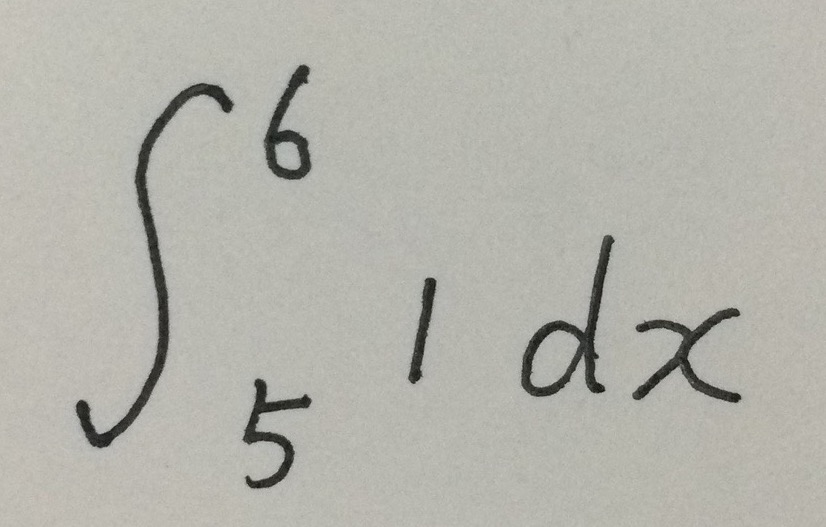 ∫₅⁶ 1 dx